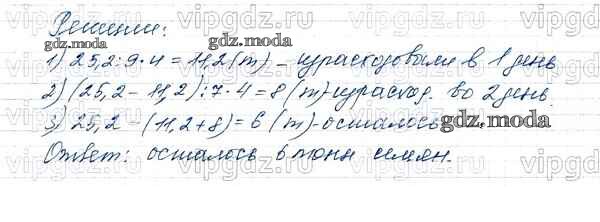 Решение:
1) 25,2:9·4=11,2(т) – израсходовали в 1 день
2) (25,2–11,2):7·4=8(т)–израсход. во 2 день.
3) 25,2–(11,2+8)=6(т)–осталось
Ответ: осталось 6 тонн семян.
gdz.moda
gdz.moda
gdz.moda
vipgdz